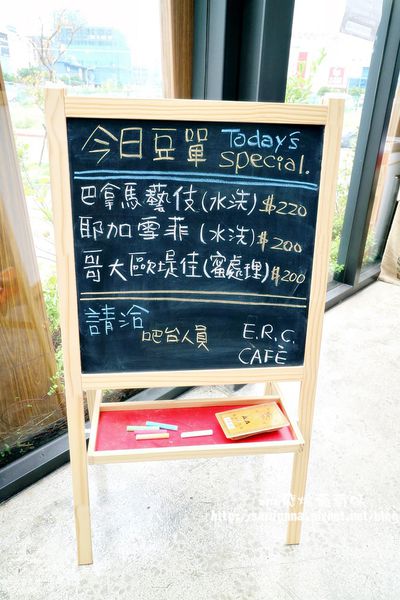 今日豆單 Today's Special.
巴拿馬藝伎(水洗) $220
耶加雪菲(水洗) $200
哥大歐堤佳(蜜處理) $200
請洽
吧台人員
E.R.C.
CAFÈ